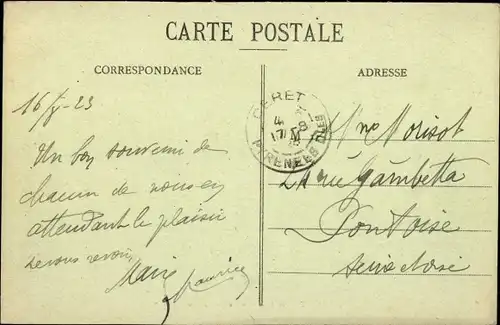 CARTE POSTALE
CORRESPONDANCE
ADRESSE
16/V-23
Un bon souvenir de
chacun de nous en
attendant le plaisir
de vous revoir
Marie
Maurice
CERET
PYRENEES ORles
Mme Morisot
24 rue Gambetta
Pontoise
Seine et Oise